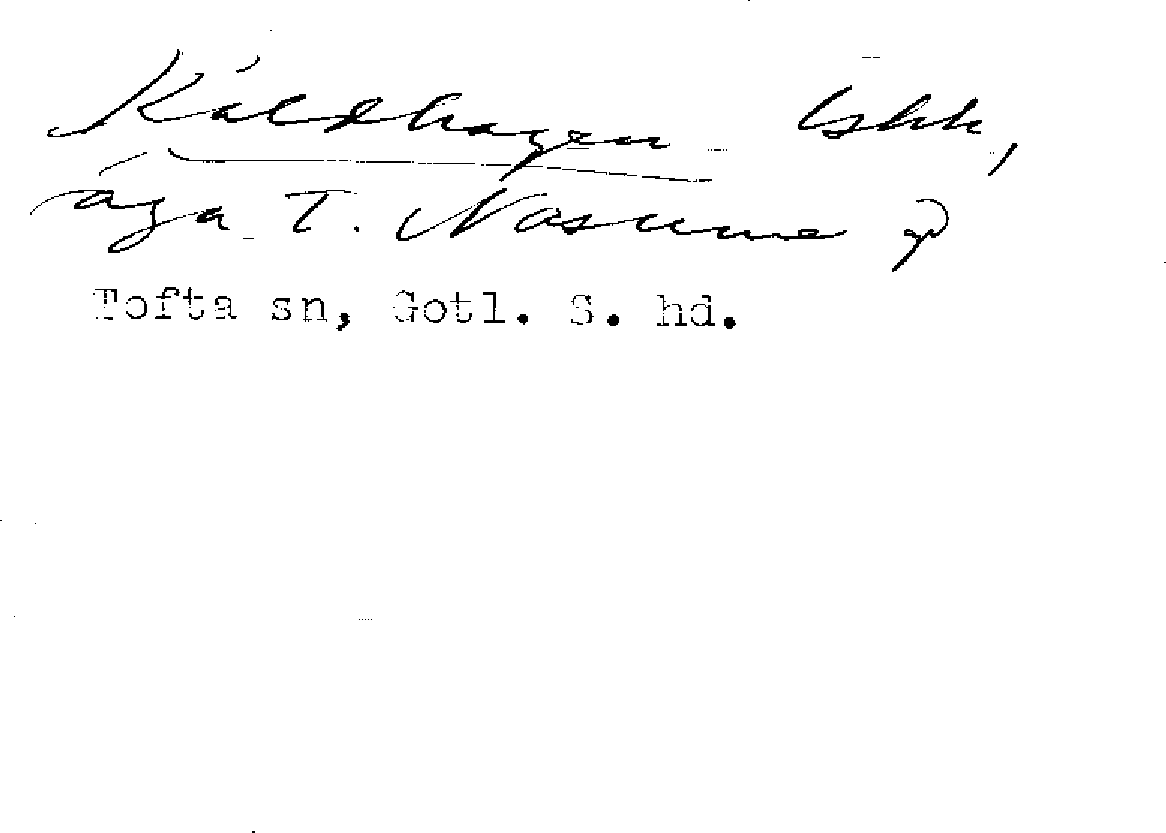 Kåldhagen lshk,
äga T. Nasume
Tofta sn, Gotl. S. hd.